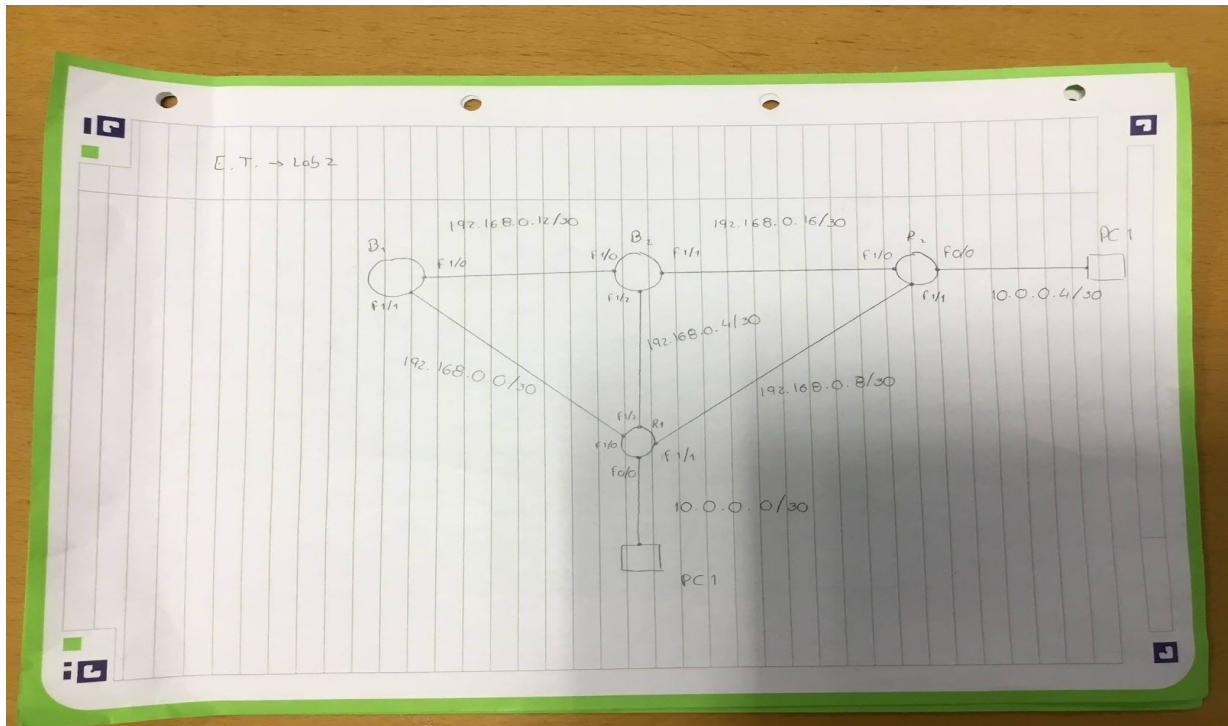 E.T. → Lab 2
192.168.0.12/30
192.168.0.16/30
B1
B2
R2
PC 1
F1/0
F1/0
F1/1
F1/0
F0/0
F1/1
F1/2
F1/1
10.0.0.4/30
192.168.0.4/30
192.168.0.0/30
192.168.0.8/30
F1/2
R1
F1/0
F1/1
F0/0
10.0.0.0/30
PC 1